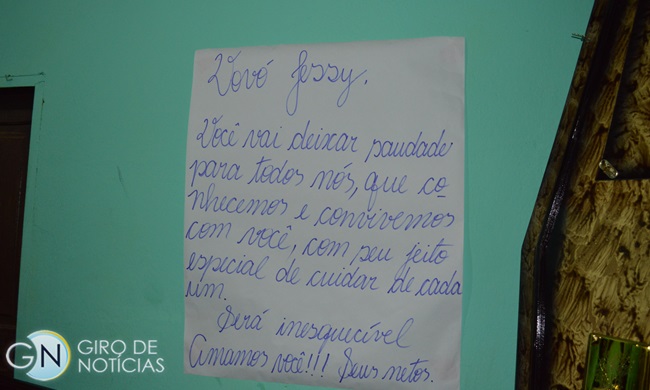 Vovó Jessy.
Você vai deixar saudade
para todos nós, que co-
nhecemos e convivemos
com você, com seu jeito
especial de cuidar de cada
um.
Será inesquecível
Amamos você!!! Seus netos.
GN GIRO DE
NOTÍCIAS